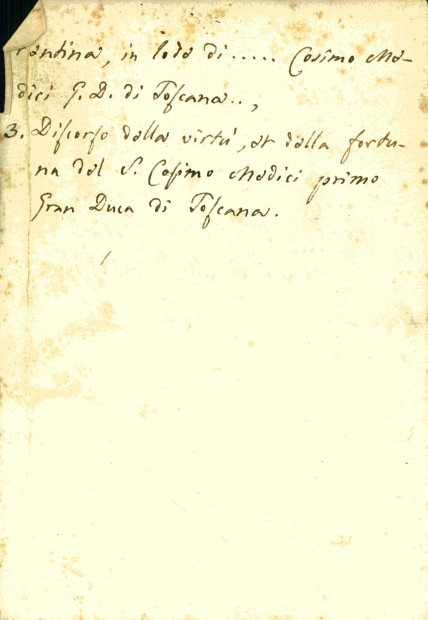 rentina, in lode di ..... Cosimo Me-
dici G. D. di Toſcana..,
3. Diſcorſo della virtú, et della fortu-
na del S. Coſimo Medici primo
Gran Duca di Toſcana.